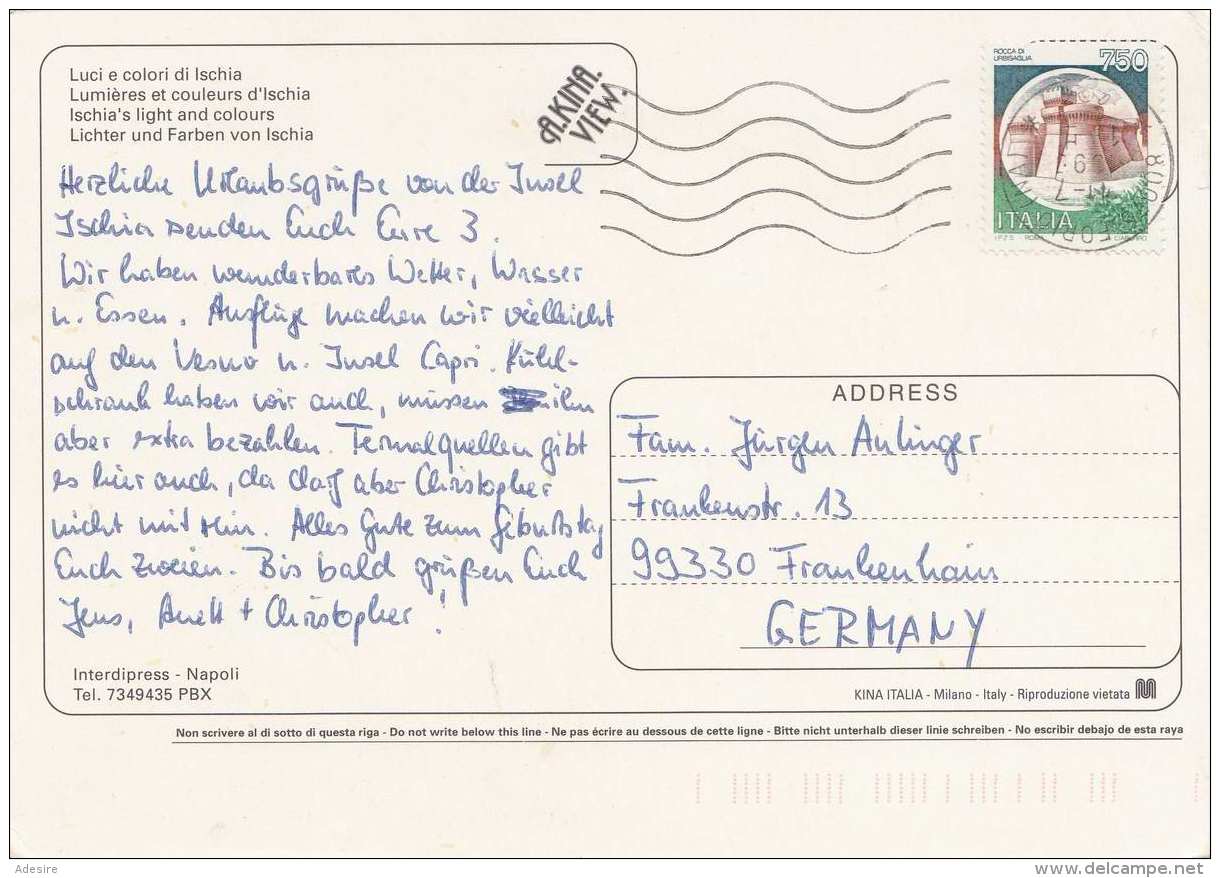 Luci e colori di Ischia
Lumières et couleurs d'Ischia
Ischia's light and colours
Lichter und Farben von Ischia
A.KINA.
VIEW.
ROCCA DI
URBISAGLIA
750
ITALIA
Herzliche Urlaubsgrüße von der Insel
Ischia senden Euch Eure 3.
Wir haben wunderbares Wetter, Wasser
u. Essen. Ausflüge machen wir vielleicht
auf den Vesuv u. Insel Capri. Kühl-
schrank haben wir auch, müssen ihn
aber extra bezahlen. Termalquellen gibt
es hier auch, da darf aber Christopher
nicht mit hin. Alles Gute zum Geburtstag
Euch zweien. Bis bald grüßen Euch
Jens, Anett + Christopher!
ADDRESS
Fam. Jürgen Anlinger
Frankenstr. 13
99330 Frankenhain
GERMANY
Interdipress - Napoli
Tel. 7349435 PBX
KINA ITALIA - Milano - Italy - Riproduzione vietata
Non scrivere al di sotto di questa riga - Do not write below this line - Ne pas écrire au dessous de cette ligne - Bitte nicht unterhalb dieser linie schreiben - No escribir debajo de esta raya
Adesire
delcampe.net